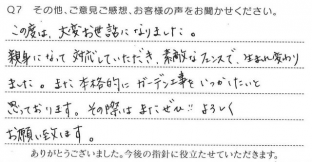 Q7 その他、ご意見ご感想、お客様の声をお聞かせください。
この度は、大変お世話になりました。
親身になって対応していただき、素敵なフェンスで、生まれ変わり
ました。また本格的にガーデン工事をいつかしたいと
思っております。その際はまたぜひ!! よろしく
お願い致します。
ありがとうございました。今後の指針に役立たせていただきます。